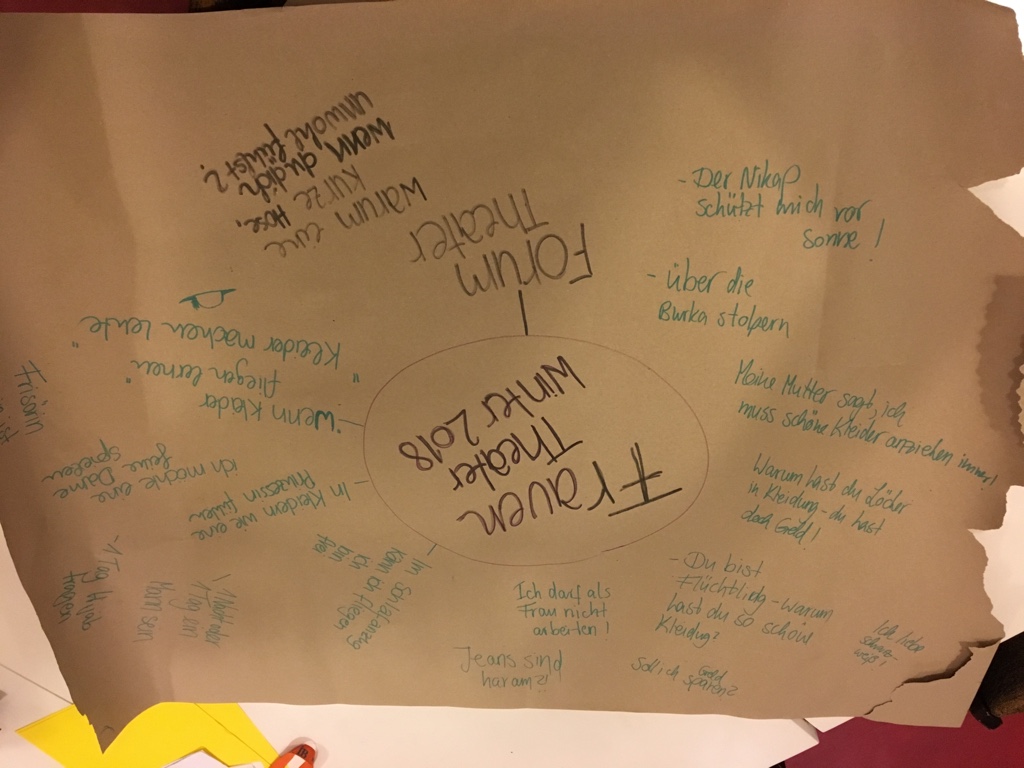 Frauen
Theater
Winter 2018
Forum
Theater
Warum eine
kurze Hose,
wenn du dich
unwohl fühlst?
- Der Nikap
schützt mich vor
Sonne!
- über die
Burka stolpern
Meine Mutter sagt, ich
muss schöne Kleider anziehen immer!
Warum hast du Löcher
in Kleidung - du hast
doch Geld!
- Du bist
Flüchtling - warum
hast du so schöne
Kleidung?
Ich liebe
Soll ich Geld
sparen?
Ich darf als
Frau nicht
arbeiten!
Jeans sind
haram?!
Im Schlafanzug
kann ich fliegen
ich bin
In Kleidern wie eine
Prinzessin fühlen
Ich möchte eine
feine Dame
spielen
- Wenn Kleider
fliegen lernen
"Kleider machen Leute"
- 1 Tag
tragen
1 Tag ein
Mann sein
Frisöin